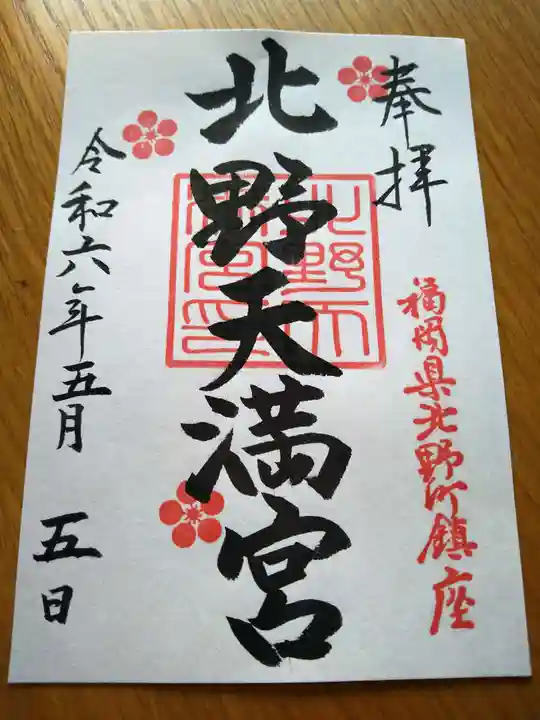 奉拝
福岡県北野町鎮座
北野天満宮
北野天満宮印
令和六年五月 五日